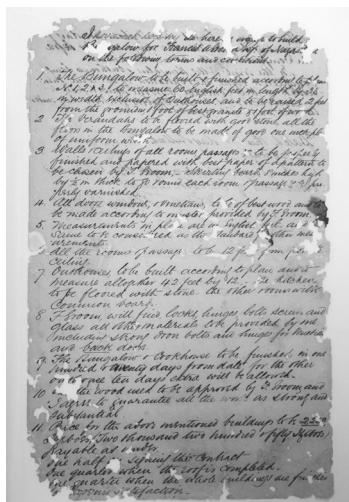 on the following terms and conditions
1. The Bungalow to be built & finished according to plan
to measure 60 english feet in length by 32
in width exclusive of Outhouses and to be raised 2 feet
from the ground on posts of best granite
2 The Verandahs to be floored with good stone all the
floors in the bungalow to be made of good one inch
of uniform width
3 Walls & ceilings of all rooms & passages to be
finished and papered with best paper of a pattern to
be chosen by F. Groom. Skirting board 8 inches high
by ½ in thick to go round each room & passage
varnished
4 All doors windows, venetians, to be of best wood and to
be made according to master provided by F. Groom
5 Measurements in plan all in English feet and
same to be considered as the standard
6 All the rooms & passages to be 12 feet from
ceiling
7 Outhouses to be built according to plan and to
measure altogether 42 feet by 12. The kitchen
to be floored with stone the other rooms with
common board
8 F. Groom will find locks, hinges bolts screws and
glass all other materials to be provided by me
including strong iron bolts and hinges for kitchen
and back doors
9 The Bungalow & Cookhouse to be finished in one
hundred & twenty days from date for the other
ten days extra will be allowed
10 the wood used to be approved by F. Groom and
I agree to guarantee all the work as strong and
substantial
11 Price for the above mentioned buildings to be 2250
Two thousand two hundred & fifty
payable as under
one half on signing this Contract
one quarter when the roof is completed
one quarter when the whole buildings are finished
satisfaction